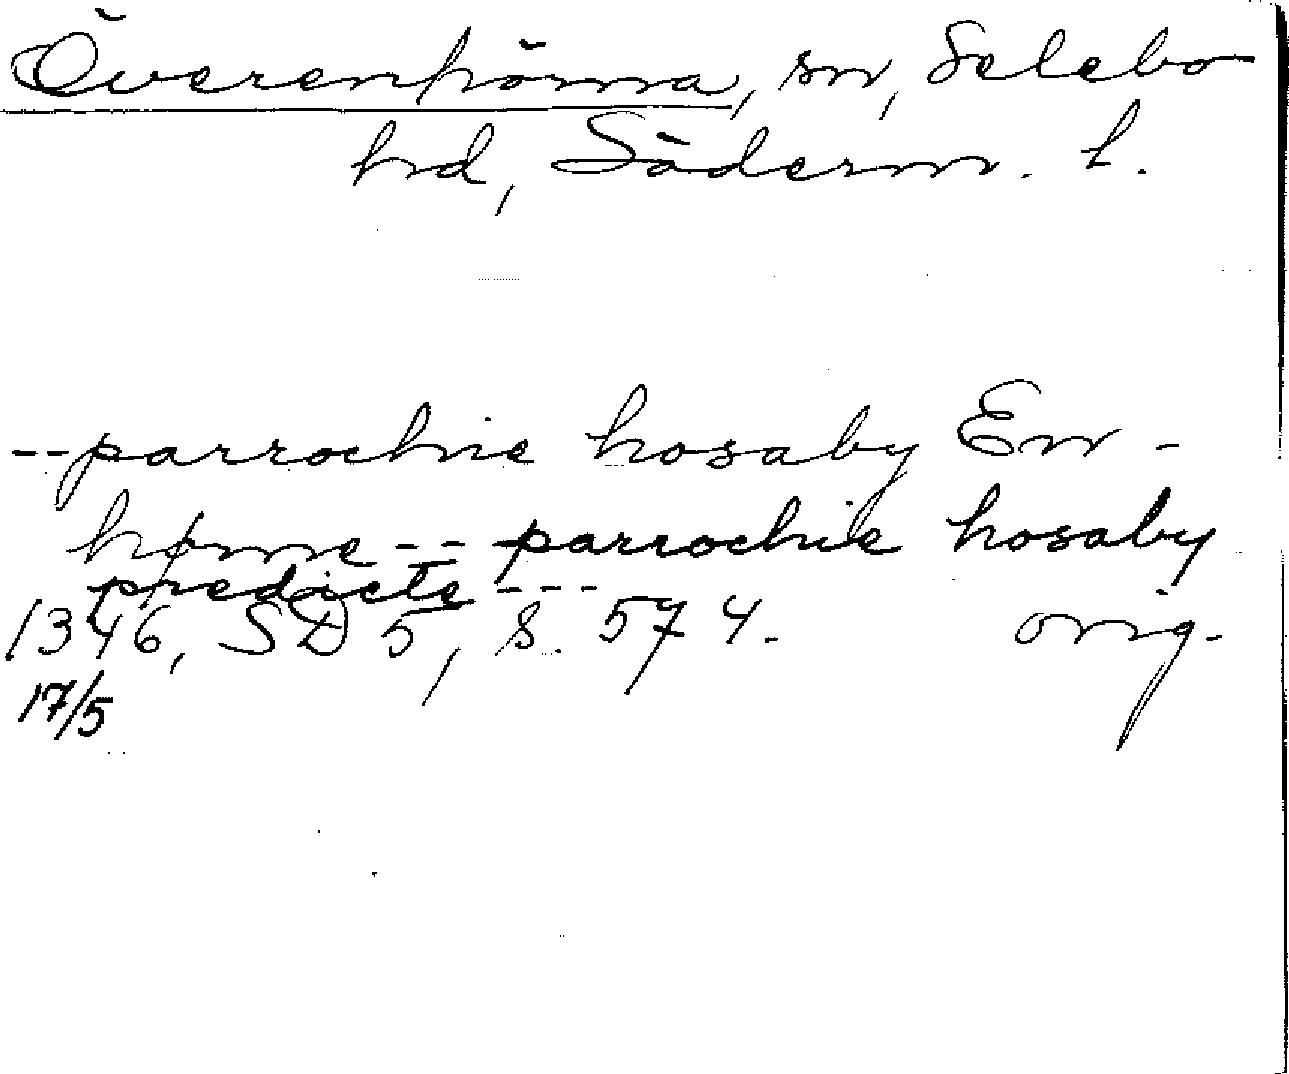 Överenhörna, sn, Selebo
hd, Söderm. l.
-- parrochie hosaby En-
hørne -- parrochie hosaby
predicte ---
1346, SD 5, s. 574. orig.
17/5